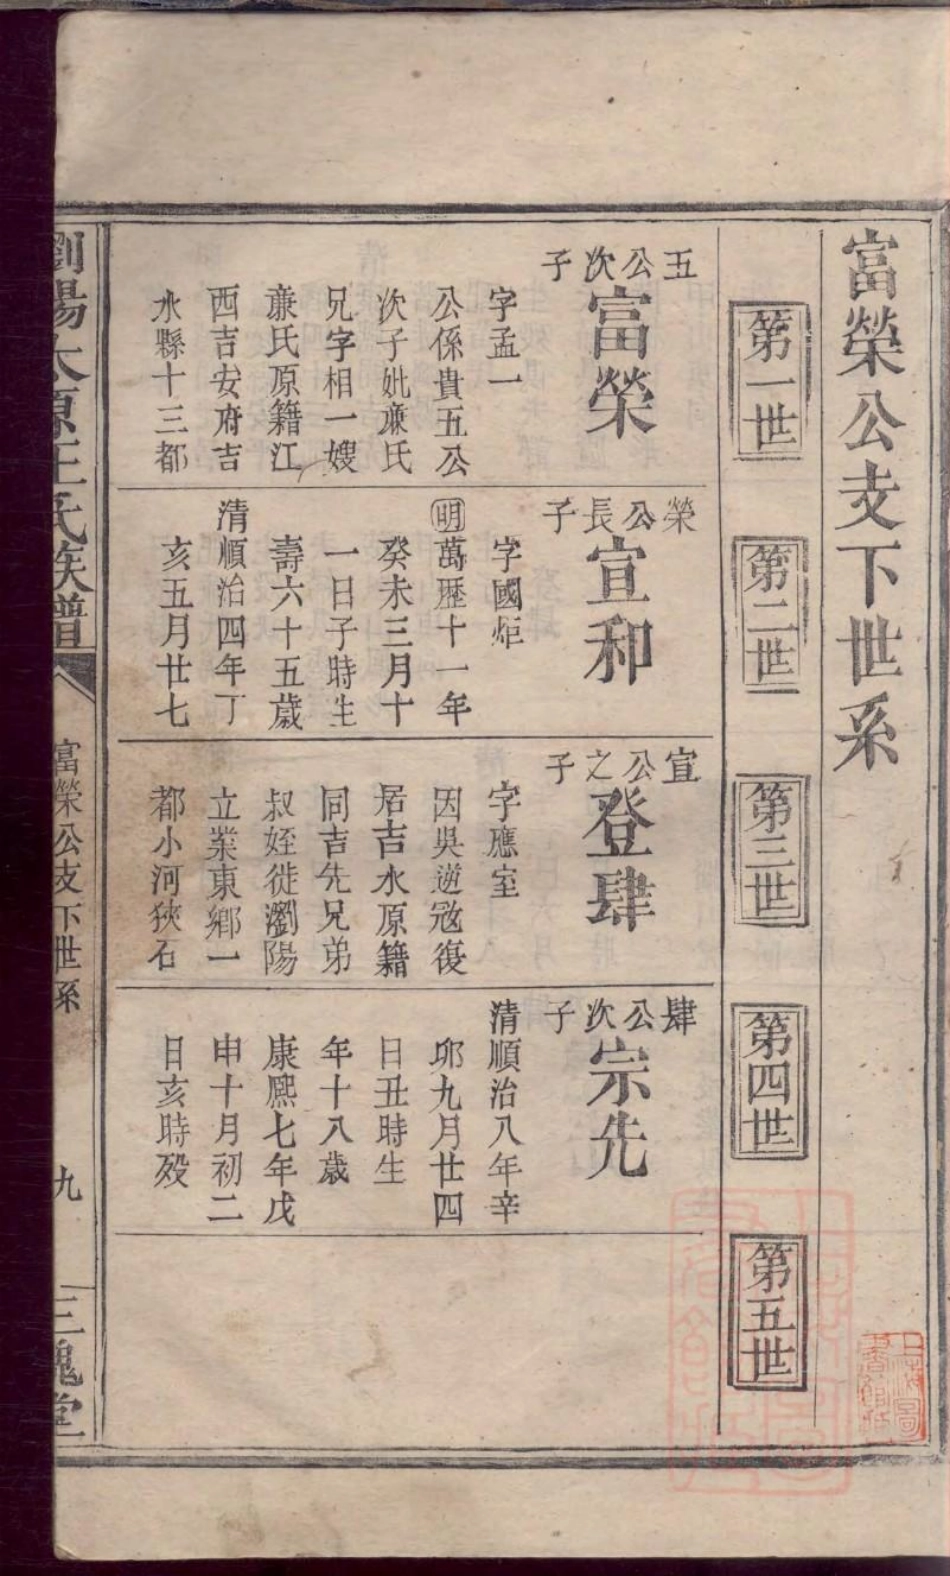 富榮公支下世系
第一世
第二世
第三世
第四世
第五世
五公次子
富榮
字孟一
公係貴五公
次子妣亷氏
兄字相一嫂
亷氏原籍江
西吉安府吉
水縣十三都
榮公長子
宣和
字國炬
明萬歷十一年
癸未三月十
一日子時生
壽六十五歲
清順治四年丁
亥五月廿七
宣公之子
登肆
字應室
因吳逆冦復
居吉水原籍
同吉先兄弟
叔姪徙瀏陽
立業東鄉一
都小河狹石
肆公次子
宗先
清順治八年辛
卯九月廿四
日丑時生
年十八歲
康熈七年戊
申十月初二
日亥時殁
瀏陽太原王氏族譜
富榮公支下世系
九
三槐堂
上海圖書館藏